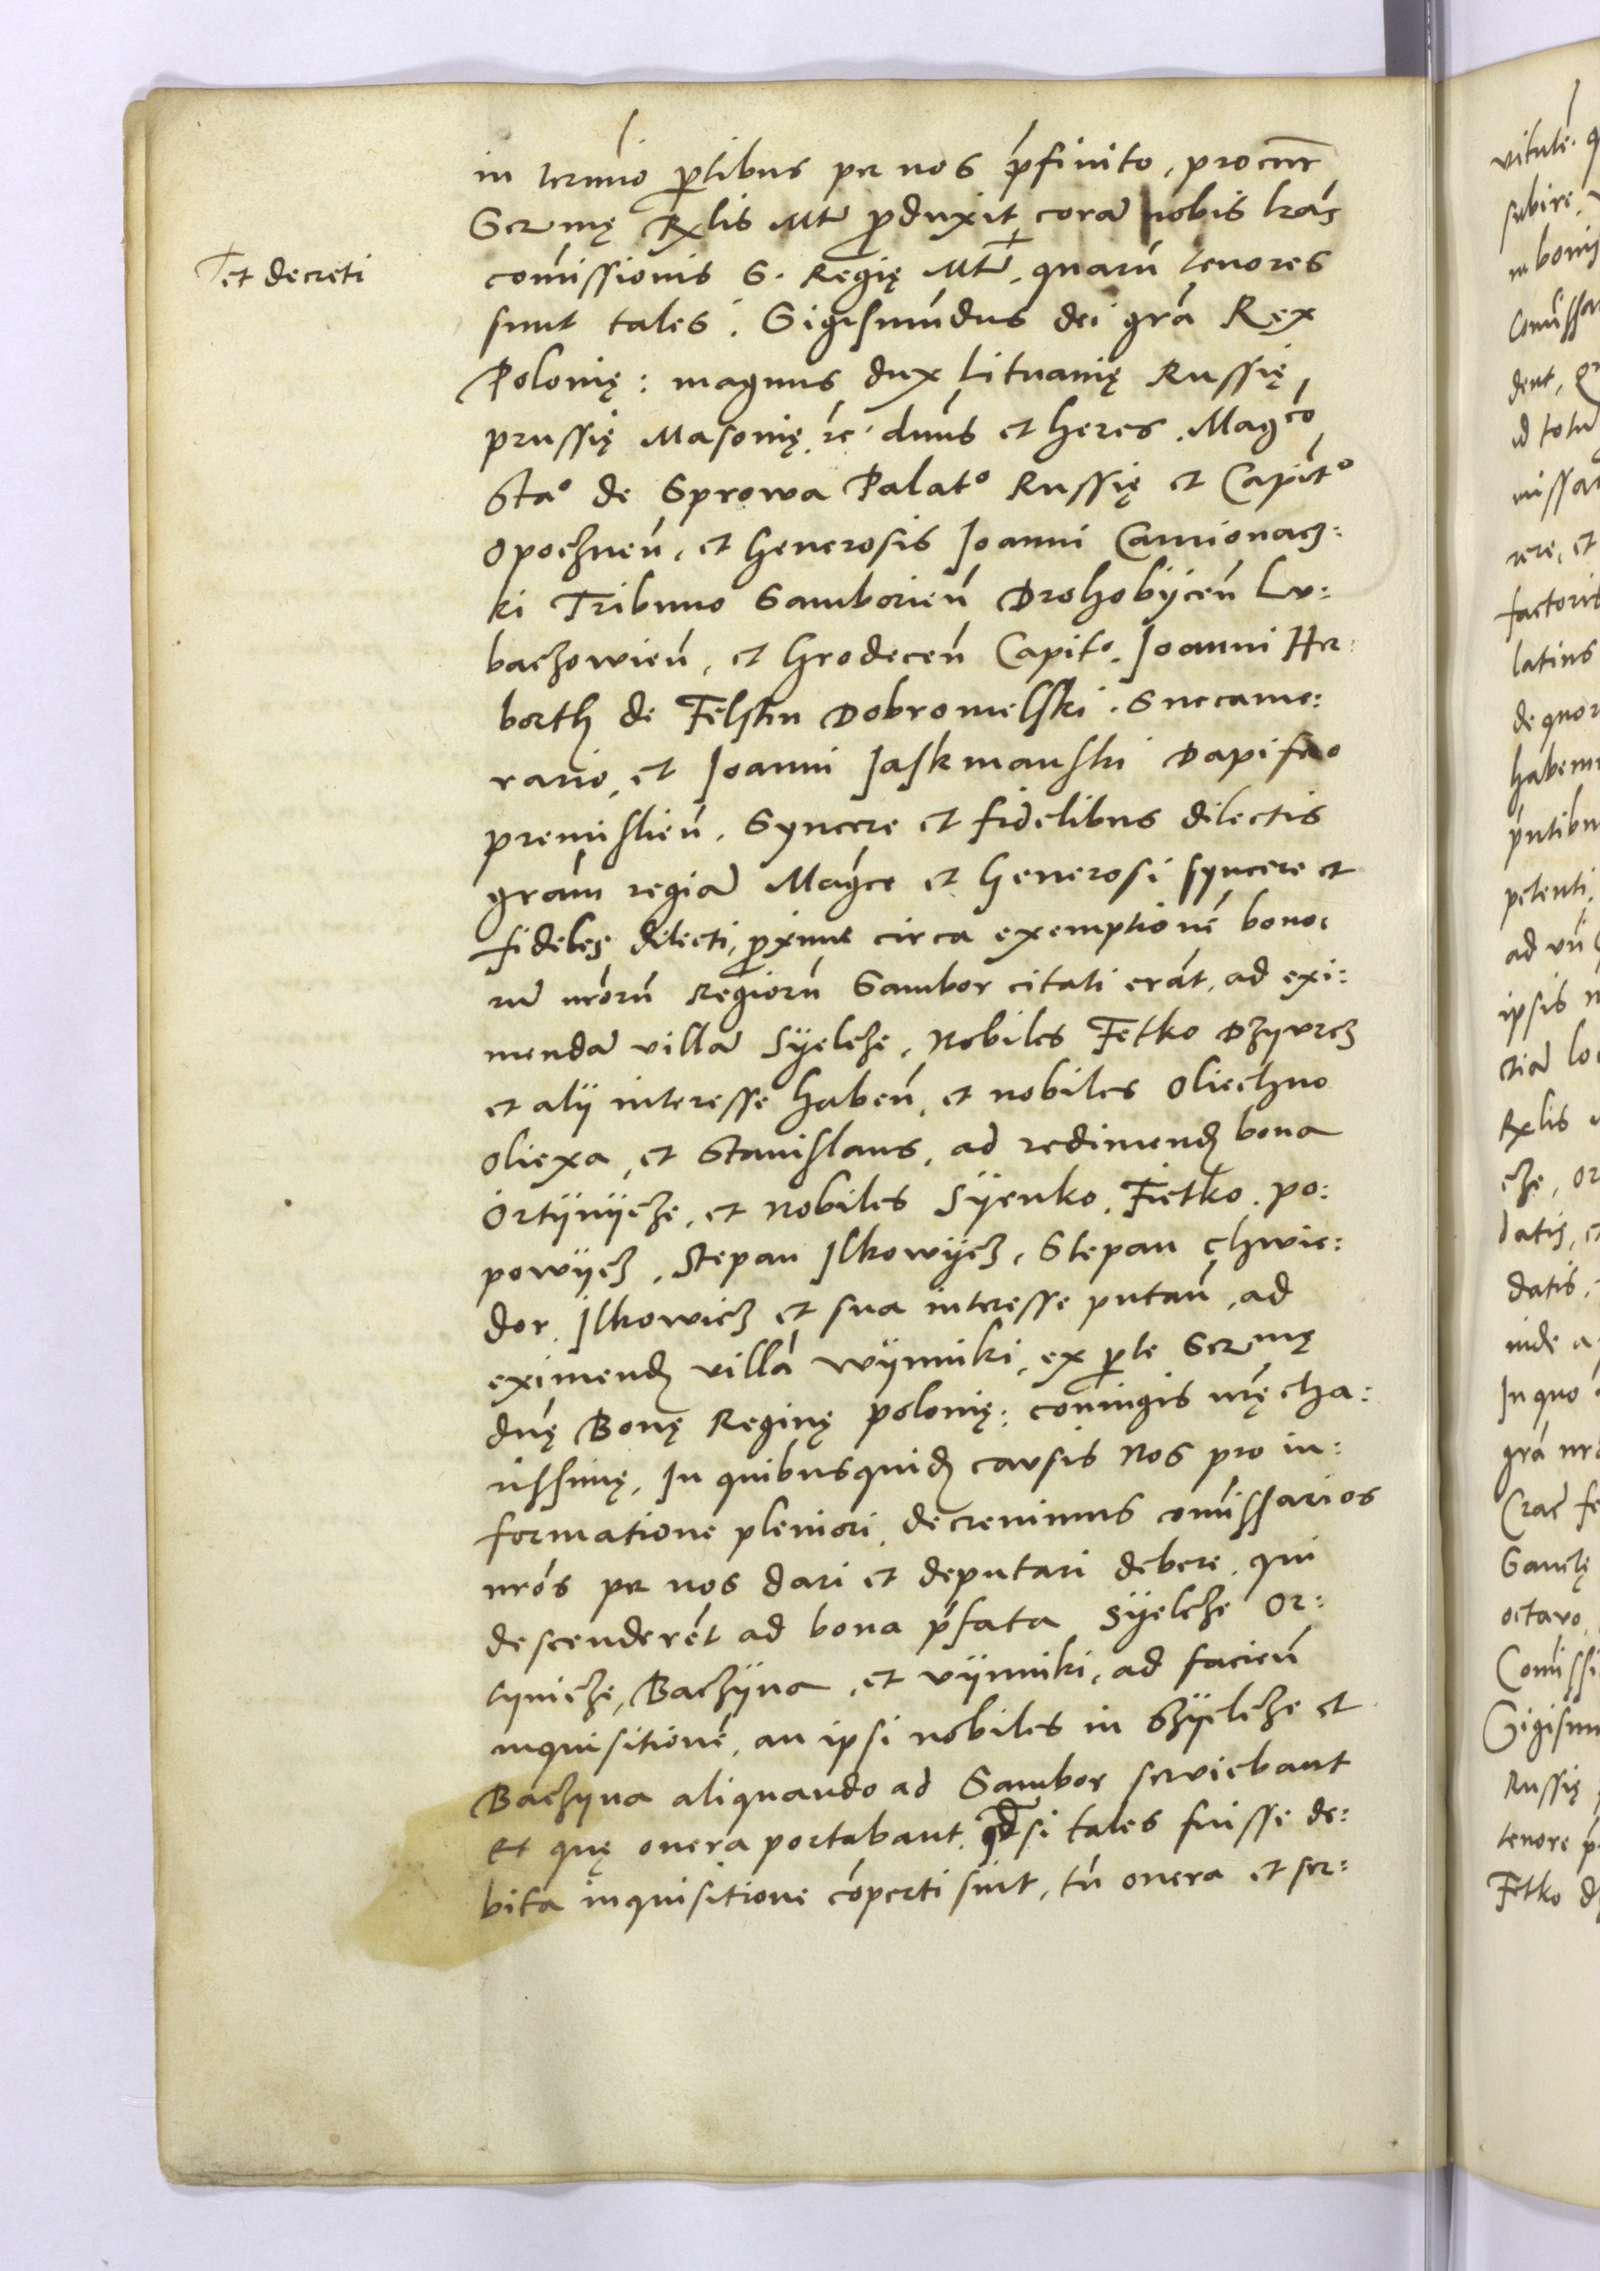 in termio ptibus per nos pfinito, procutr
Sermę Rxlis Mtis pduxit cora nobis lras
ꝉ et decreti
comissionis S. Regię Mtis ꝉ, quaru tenores
sunt tales. Sigismundus dei gra Rex
Polonię: magnus dux Lituanię Russię
prussię Masouię rc dnus et heres. Magco
Stao de Sprowa Palato Russię et Capito
Opoczneń, et generosis Joanni Camionacz:
ki Tribuno Samborień Drohobÿceń Lu:
baczowień, et Grodeceń Capito. Joanni Her:
borth de Felstin Dobromelski. Succame:
rario, et Joanni Jaskmanski Dapifero
premislień. Syncere et fidelibus dilectis
gram regia Magce et Generosi syncere et
fideles dilecti, pxime circa exemptione bono:
ru nroru Regioru Sambor citati erat, ad exi:
menda villa Sÿelcze, Nobiles Fetko Dzywrcz
et alij interesse habeń, et nobiles Oliechno
Oliexa, et Stanislaus, ad redimend bona
Ortÿnÿcze, et Nobiles Sÿenko. Fietko. po:
powÿcz, Stepan Ilkowÿcz, Stepan Chwie:
dor Ilkowicz et sua interesse putań, ad
eximend villa wÿnniki, ex pte Sermę
dnę Bonę Reginę polonię: coniugis nrę cha:
rissimę, In quibusquid causis Nos pro in:
formatione pleniori, decreuimus comissarios
nros per nos dari et deputari debere, qui
descenderet ad bona pfata Sÿelcze Or:
tynicze, Baczÿna, et vÿnniki, ad facień
inquisitione, an ipsi nobiles in Szÿelcze et
Baczyna aliquando ad Sambor seruiebant
et quę onera portabant. qd si tales fuisse de:
bita inquisitione coperti sint, tu onera et ser: